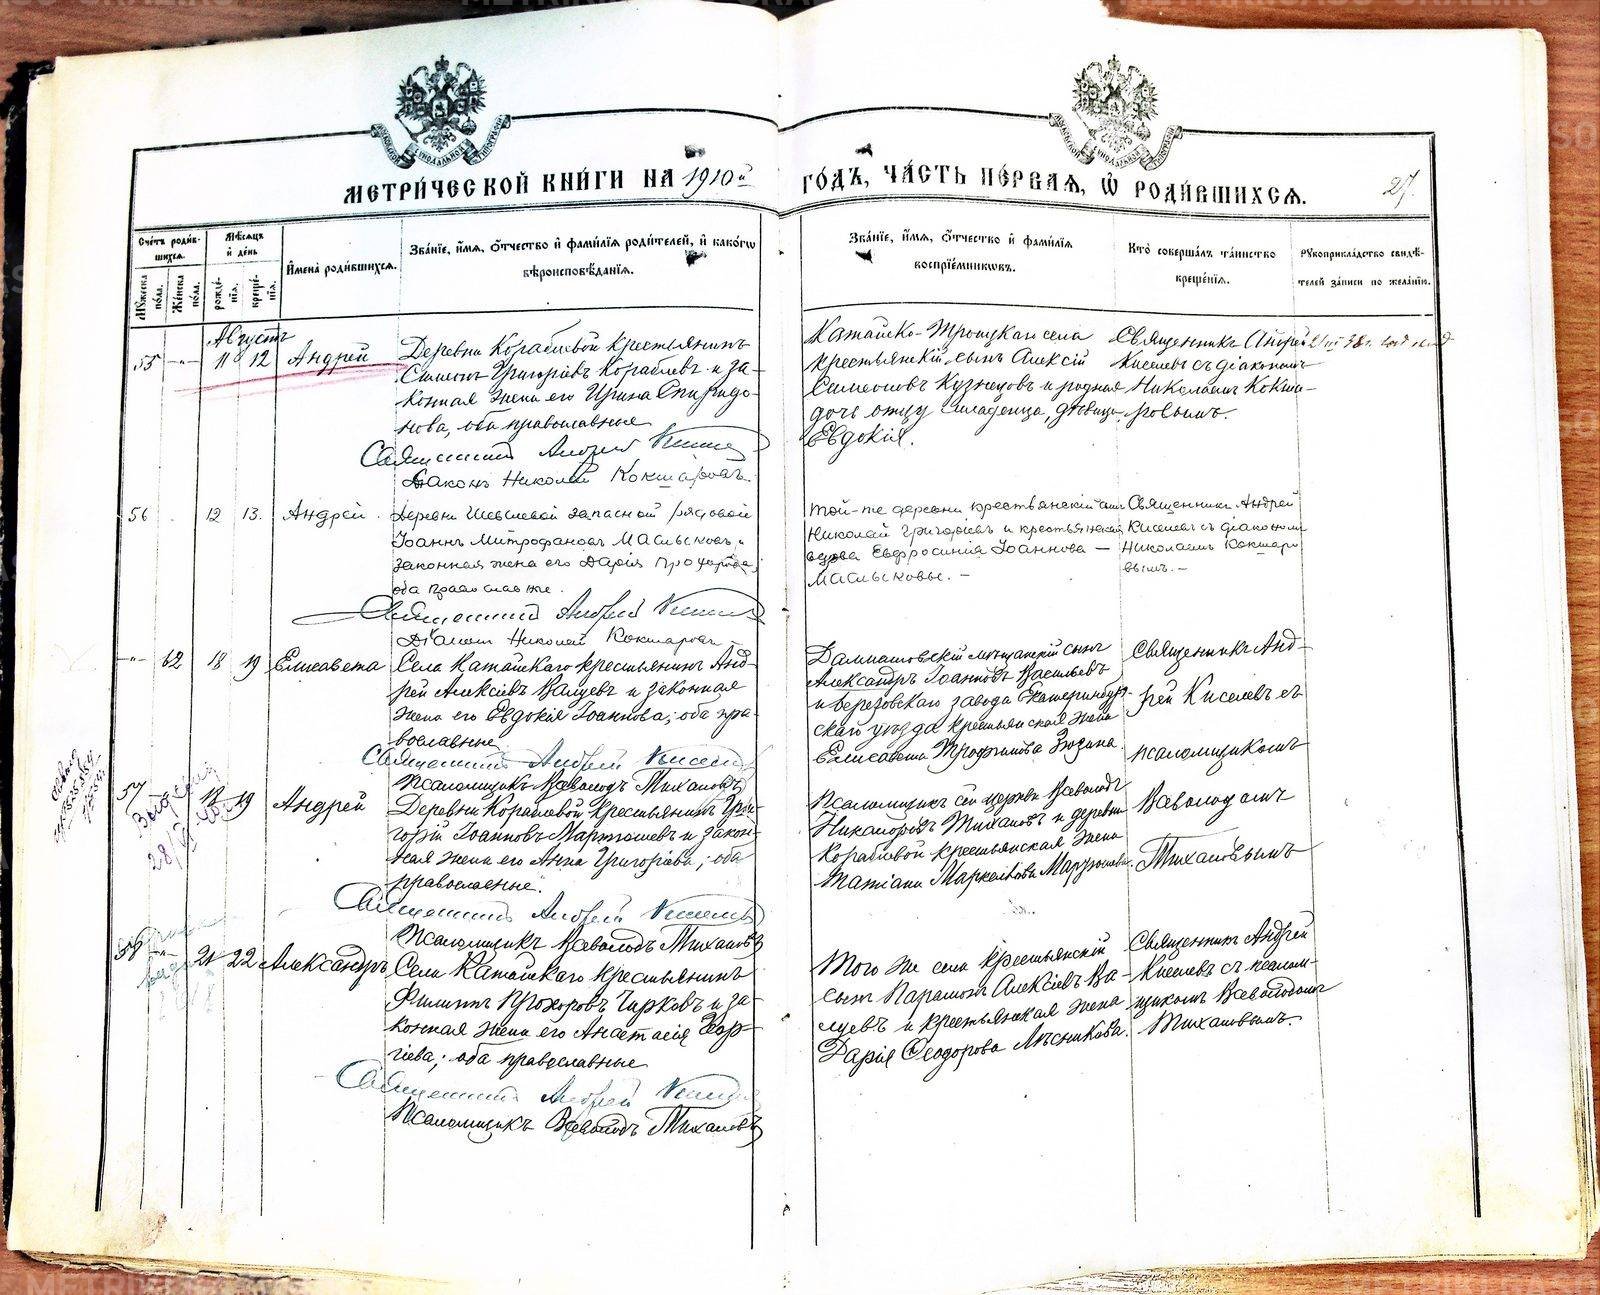 МЕТРИ́ЧЕСКОЙ КНИ́ГИ НА 1910й ГО́ДЪ, ЧА́СТЬ ПЕ́РВАЯ, Ѡ҆ РОДИ́ВШИХСЯ.
27.
Сче́тъ роди́вшихся.
Мꙋжеска пола.
Же́нска пола.
Мѣ́сяцъ и҆ де́нь
рожде́нїя.
креще́нїя.
И҆мена̀ роди́вшихся.
Зва́нїе, и҆́мя, ѻ҆́тчество и҆ фами́лїя роди́телей, и҆ како́гѡ вѣроисповѣ́данїя.
Зва́нїе, и҆́мя, ѻ҆́тчество и҆ фами́лїя воспрїе́мникѡвъ.
Кто̀ соверша́лъ та́инство креще́нїя.
Рꙋкоприкла́дство свидѣ́телей за́писи по жела́нїю.
Августъ
55 -"- 11 12 Андрей
Деревни Кораблевой крестьянинъ
Симеонъ Григоріевъ Кораблевъ и за-
конная жена его Ирина Спиридо-
нова, оба православные
Священникъ Андрей Киселевъ
Діаконъ Николай Кокшаровъ.
Катайско-Троицкаго села
крестьянскій сынъ Алексій
Симеоновъ Кузнецовъ и родная
дочь отцу младенца, дѣвица
Евдокія.
Священникъ Андрей
Киселевъ съ діакономъ
Николаемъ Кокша-
ровымъ.
56 12 13. Андрей.
Деревни Шевелевой запасной рядовой
Іоаннъ Митрофановъ Маслыковъ и
законная жена его Дарія Прохорова,
оба православные.
Священникъ Андрей Киселевъ
Діаконъ Николай Кокшаровъ
Той-же деревни крестьянскій сынъ
Николай Григоріевъ и крестьянская
вдова Евфросинія Іоаннова —
Маслыковы. —
Священникъ Андрей
Киселевъ съ діакономъ
Николаемъ Кокшаро-
вымъ. —
-"- 62 18 19 Елисавета
Села Катайскаго крестьянинъ Анд-
рей Алексіевъ Валцевъ и законная
жена его Евдокія Іоаннова; оба пра-
вославные
Священникъ Андрей Киселевъ
Псаломщикъ Всеволодъ Тихановъ
Далматовскій мѣщанскій сынъ
Александръ Іоанновъ Васильевъ
и Березовскаго завода Екатеринбур-
скаго уѣзда крестьянская жена
Елисавета Трофимова Зюзина.
Священникъ Анд-
рей Киселевъ съ
псаломщикомъ
Всеволодомъ
Тихановымъ
57 19 Андрей
Деревни Кораблевой крестьянинъ Гри-
горій Іоанновъ Мартюшевъ и закон-
ная жена его Анна Григоріева; оба
православные.
Священникъ Андрей Киселевъ
Псаломщикъ Всеволодъ Тихановъ
Псаломщикъ сей церкви Всеволодъ
Никаноровъ Тихановъ и деревни
Кораблевой крестьянская жена
Татіана Маркелова Мартюшева.
58 -"- 21 22 Александръ
Села Катайскаго крестьянинъ
Филиппъ Прохоровъ Чирковъ и за-
конная жена его Анастасія Геор-
гіева; оба православные
Священникъ Андрей Киселевъ
Псаломщикъ Всеволодъ Тихановъ
Того же села крестьянскій
сынъ Парамонъ Алексіевъ Ва-
лцевъ и крестьянская жена
Дарія Ѳеодорова Лѣсникова.
Священникъ Андрей
Киселевъ съ псалом-
щикомъ Всеволодомъ
Тихановымъ.